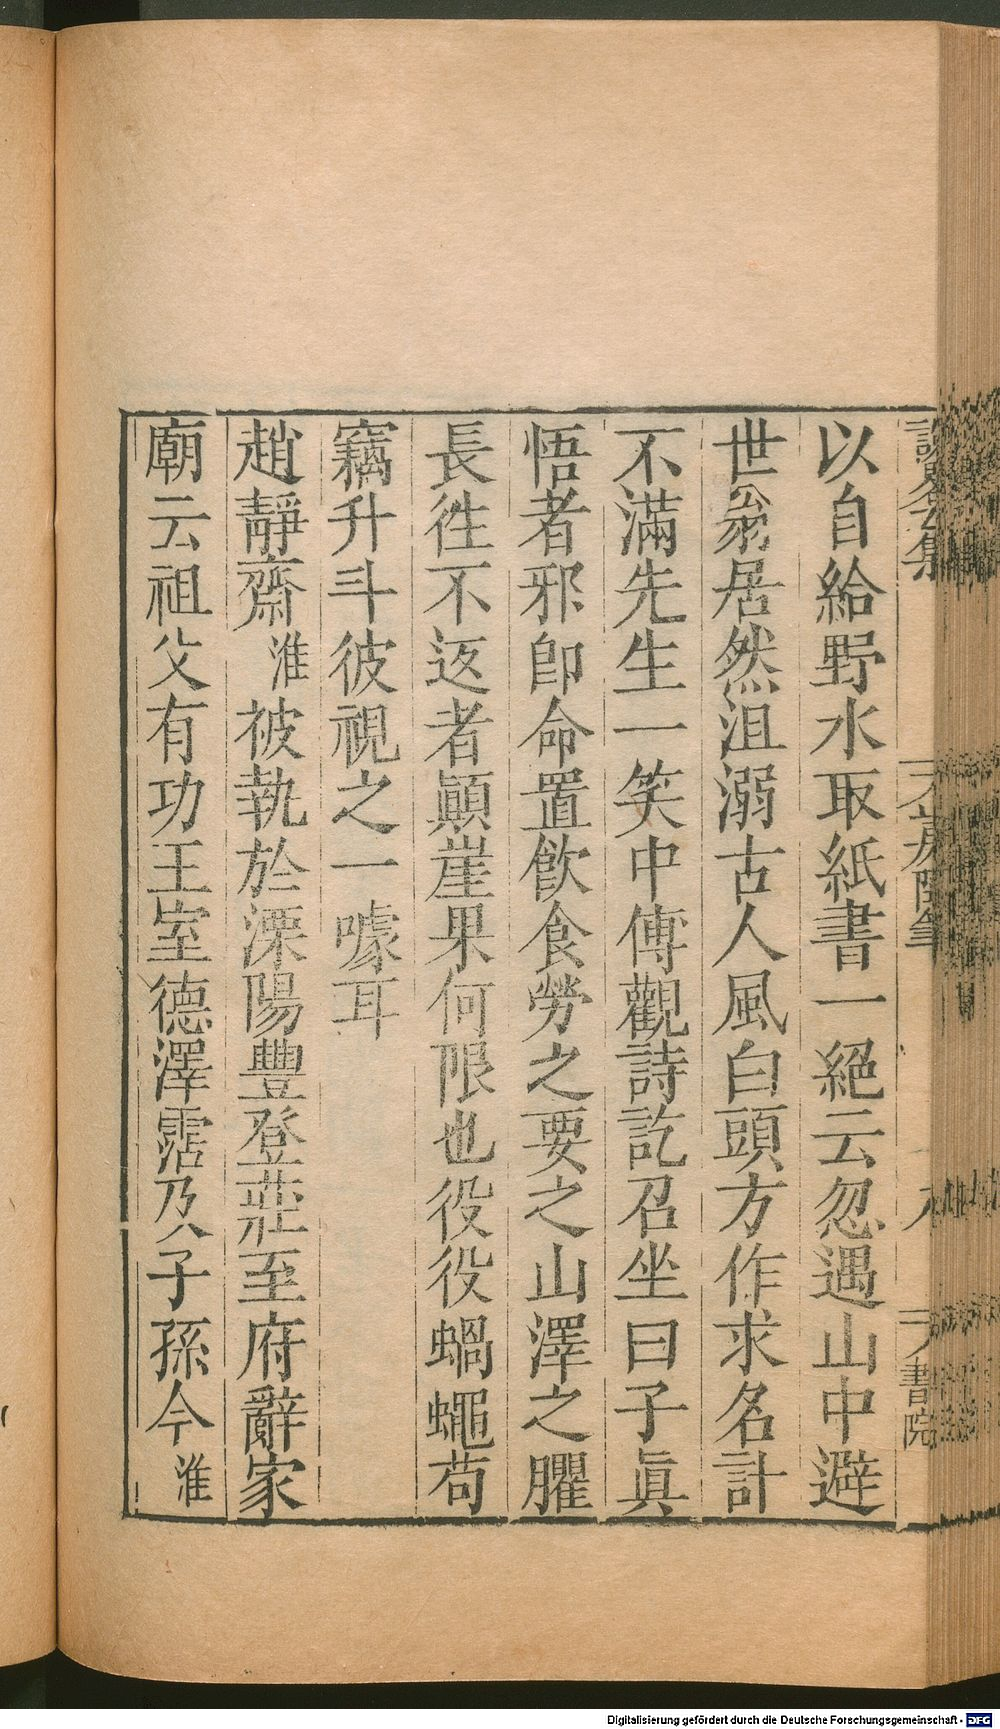 以自給野水取紙書一絕云忽遇山中避
世翁居然沮溺古人風白頭方作求名計
不滿先生一笑中傅觀詩訖召坐曰子眞
悟者邪卽命置飲食勞之要之山澤之臞
長徃不返者顚崖果何限也役役蝸蠅苟
竊升斗彼視之一噱耳
趙靜齋淮被執於溧陽豐登莊至府辭家
廟云祖父有功王室德澤霑及子孫今淮
書院
Digitalisierung gefördert durch die Deutsche Forschungsgemeinschaft - DFG